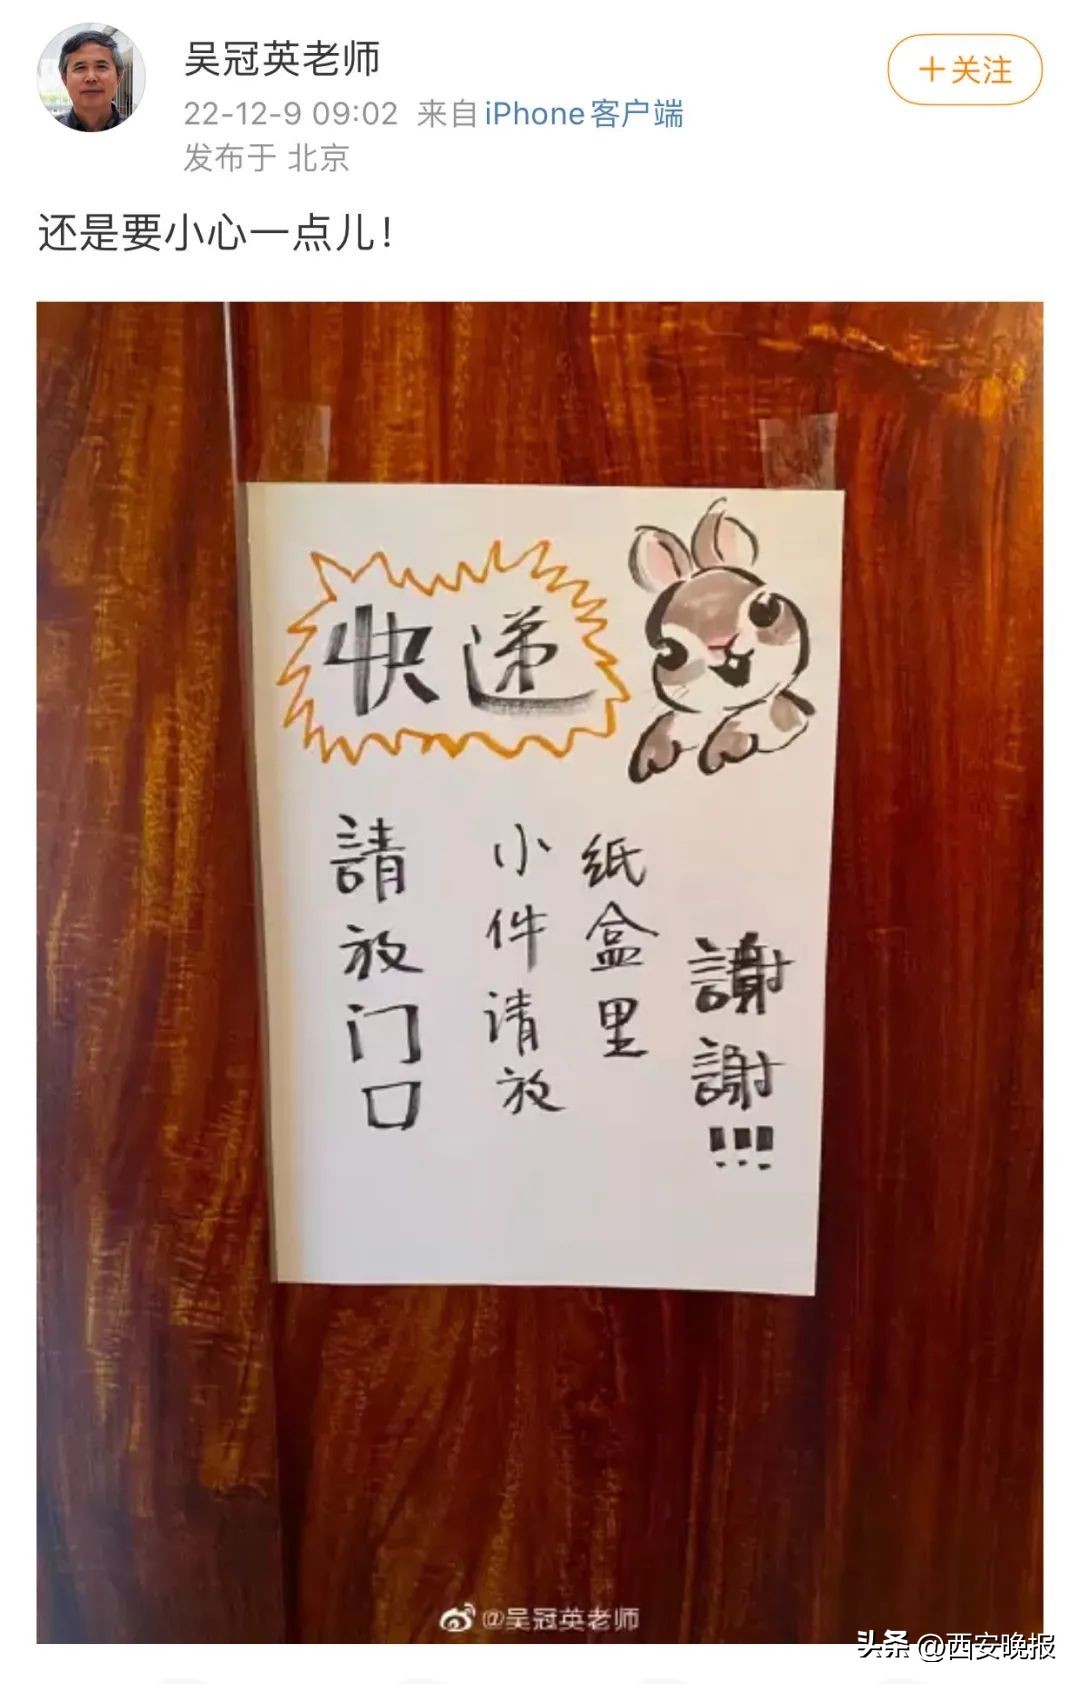 吴冠英老师
22-12-9 09:02 来自 iPhone客户端
发布于 北京
+关注
还是要小心一点儿!
快递
請放门口
小件请放
纸盒里
謝謝!!!
@吴冠英老师
头条 @西安晚报